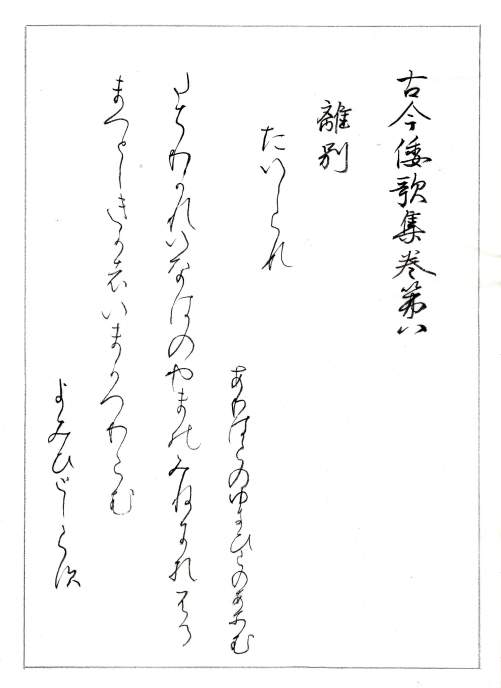 古今倭歌集巻第八
離別
たいしらす
ありはらのゆきひらのあそむ
たちわかれいなはのやまのみねにおふる
まつとしきかはいまかへりこむ
よみひとしらす